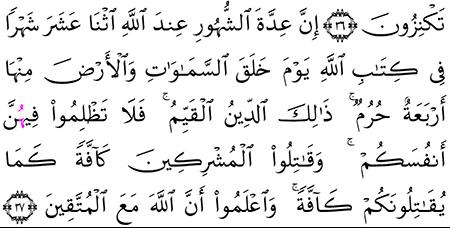 تَكْنِزُونَ ۝٣٦ إِنَّ عِدَّةَ ٱلشُّهُورِ عِندَ ٱللَّهِ ٱثْنَا عَشَرَ شَهْرًا
فِى كِتَٰبِ ٱللَّهِ يَوْمَ خَلَقَ ٱلسَّمَٰوَٰتِ وَٱلْأَرْضَ مِنْهَا
أَرْبَعَةٌ حُرُمٌ ۚ ذَٰلِكَ ٱلدِّينُ ٱلْقَيِّمُ ۚ فَلَا تَظْلِمُوا۟ فِيهُنَّ
أَنفُسَكُمْ ۚ وَقَٰتِلُوا۟ ٱلْمُشْرِكِينَ كَآفَّةً كَمَا
يُقَٰتِلُونَكُمْ كَآفَّةً ۚ وَٱعْلَمُوا۟ أَنَّ ٱللَّهَ مَعَ ٱلْمُتَّقِينَ ۝٣٧